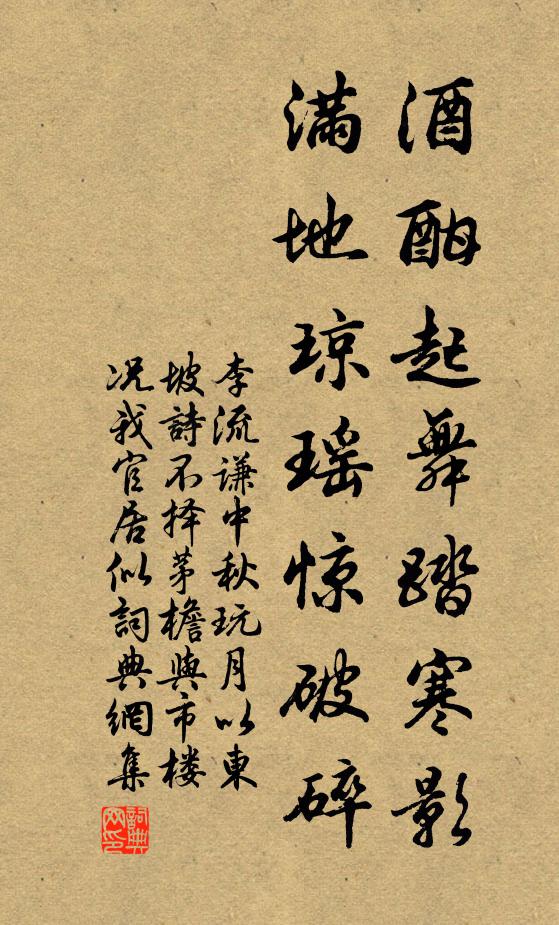 酒酣起舞踏寒影
满地琼瑶惊破碎
李流谦中秋玩月以東
坡詩不择茅檐與市楼
况我官居似詞典網集
詞典网印